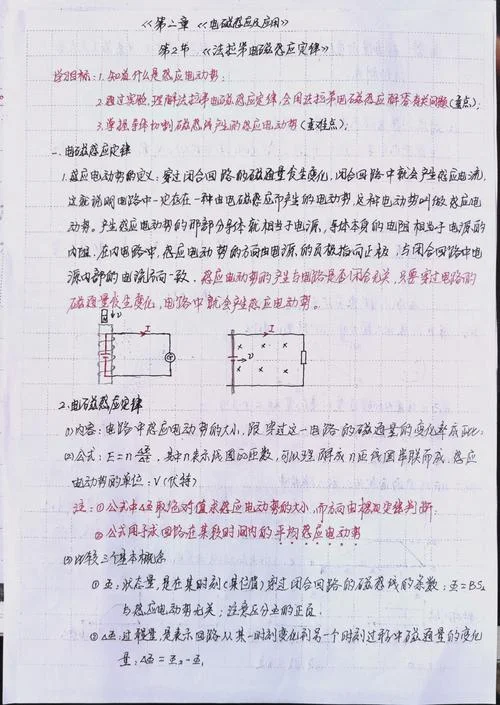 《第二章 《电磁感应及应用》
第2节 《法拉第电磁感应定律》
学习目标:1.知道什么是感应电动势;
2.通过实验,理解法拉第电磁感应定律,会用法拉第电磁感应解答有关问题(重点);
3.掌握导体切割磁感线产生的感应电动势(重难点);
一、电磁感应定律
1.感应电动势的定义:穿过闭合回路的磁通量发生变化,闭合回路中就会产生感应电流,
这就说明电路中一定存在一种由电磁感应而产生的电动势,这种电动势叫做感应电
动势。产生感应电动势的那部分导体就相当于电源,导体本身的电阻相当于电源的
内阻,在内电路中,感应电动势的方向由电源的负极指向正极,与闭合回路中电
源内部的电流方向一致。感应电动势的产生与电路是否闭合无关,只要穿过电路的
磁通量发生变化,电路中就会产生感应电动势。
υ I G
I υ
2.电磁感应定律
(1)内容:电路中感应电动势的大小,跟穿过这一电路的磁通量的变化率成正比。
(2)公式:E=n ΔΦ/Δt,其中n表示线圈的匝数,可以理解成n匝线圈串联而成,感应
电动势的单位:V(伏特)
注:①公式中ΔΦ取绝对值求感应电动势的大小,而方向由楞次定律判断;
②公式用于求回路在某段时间内的平均感应电动势
(3)比较三个基本概念
①Φ:状态量,是在某时刻(某位置)穿过闭合回路的磁感线的条数;Φ=BS⊥
与感应电动势无关;注意区分Φ的正负
②ΔΦ:过程量,是表示回路从某一时刻变化到另一个时刻过程中磁通量的变化
量,ΔΦ=Φ₂-Φ₁